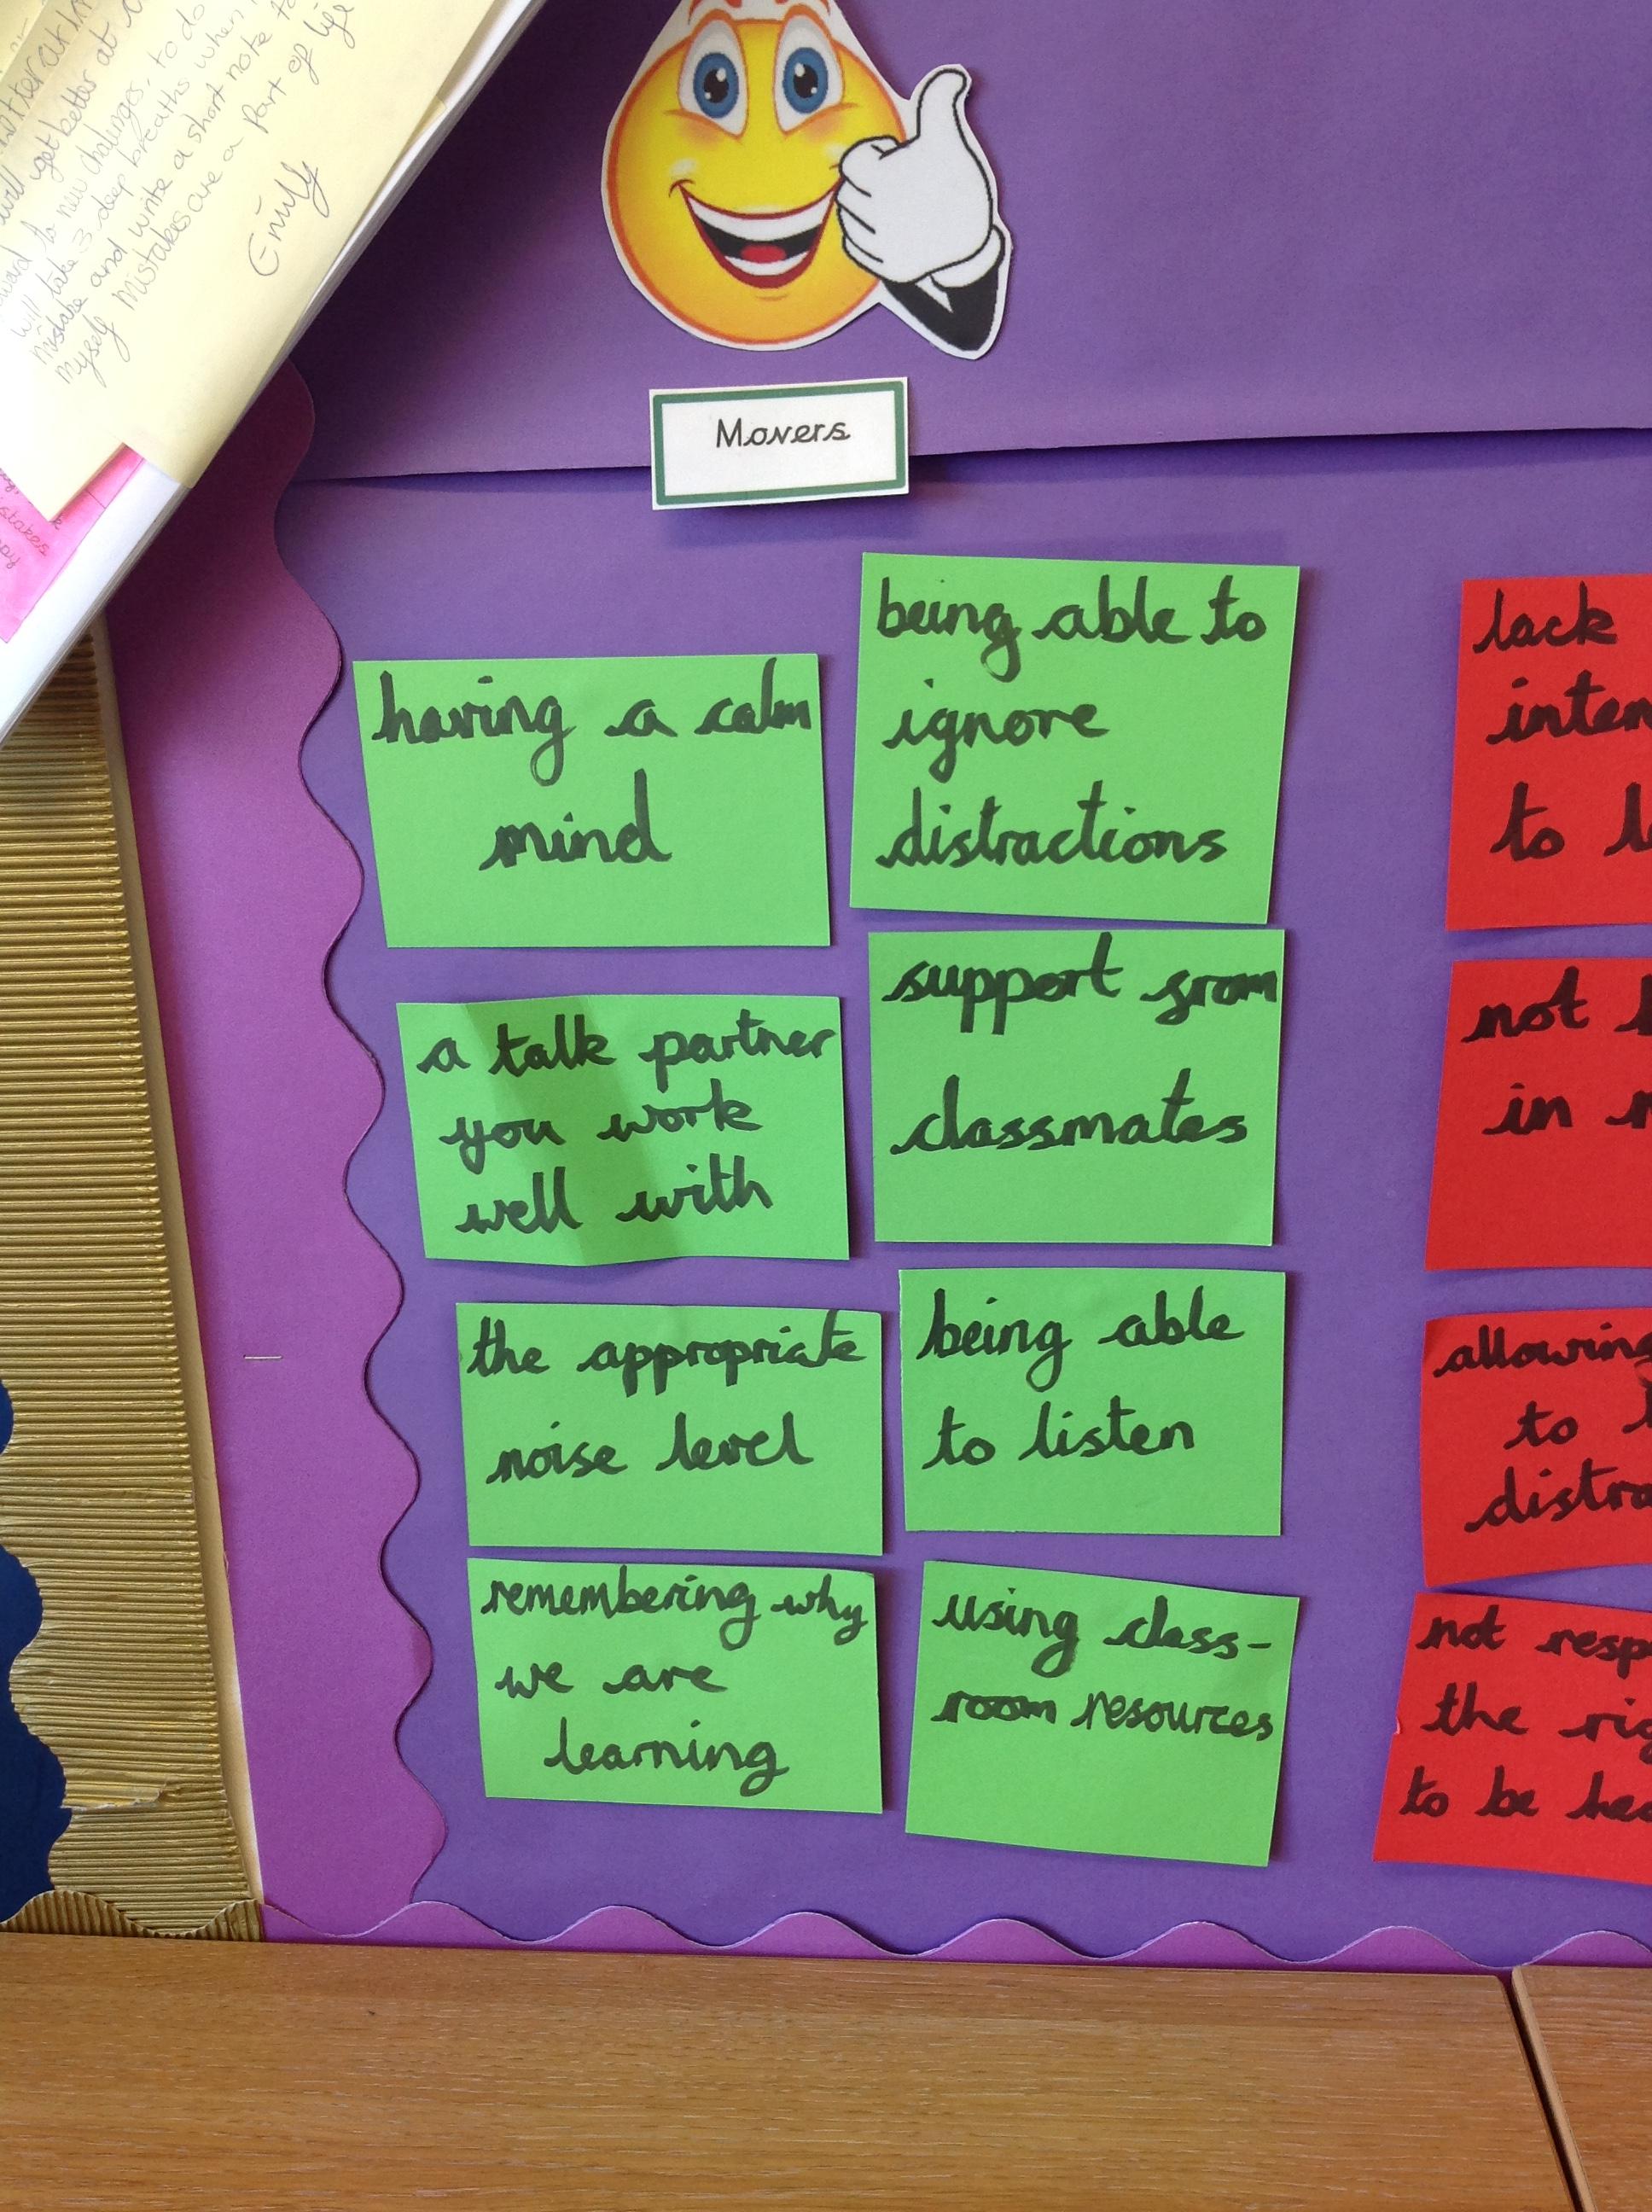 will get better at
new challenges, to do
will take 3 deep breaths when
mistake and write a short note to
myself mistakes are a part of life
Emily
Movers
having a calm
mind
being able to
ignore
distractions
a talk partner
you work
well with
support from
classmates
the appropriate
noise level
being able
to listen
remembering why
we are
learning
using class-
room resources
lack
to
not
in
allowing
to
not
the
to be